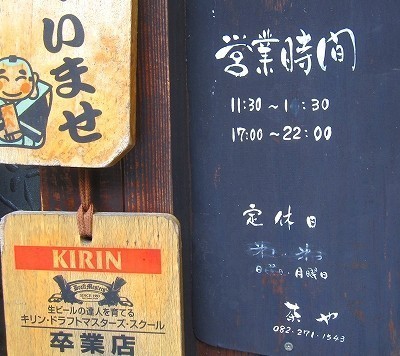 いませ
KIRIN
Draft Masters
SINCE 1995
生ビールの達人を育てる
キリン・ドラフトマスターズ・スクール
卒業店
営業時間
11:30～1 :30
17:00～22:00
定休日
日曜日・月曜日
茶や
082-271-1543